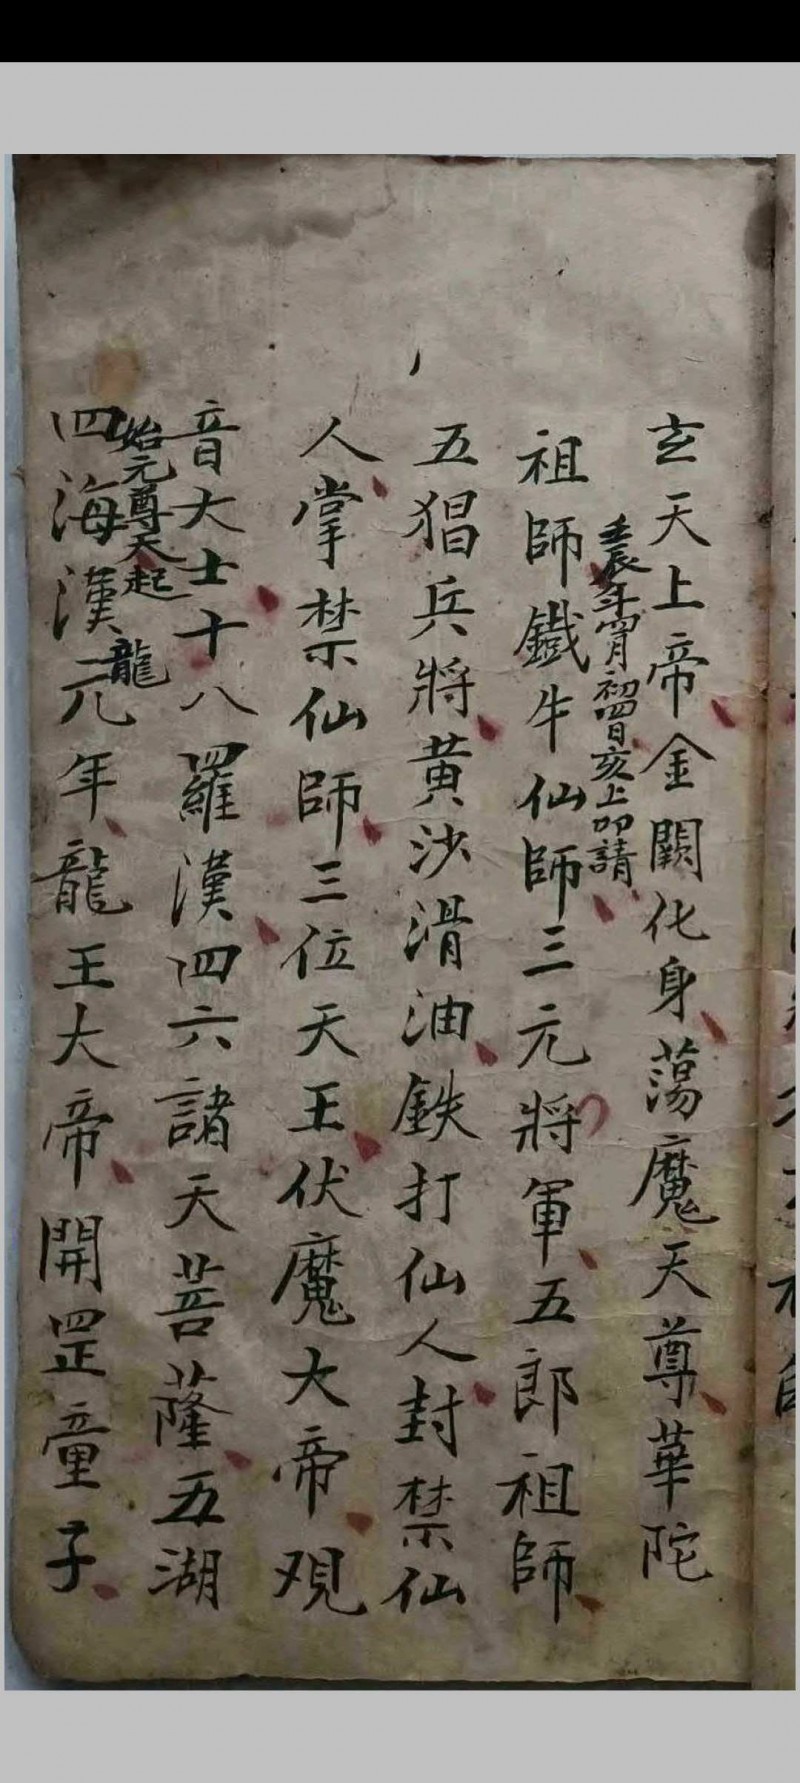 玄天上帝金闕化身蕩魔天尊華陀
壬辰年宵月初四日亥上卯請
祖師鐵牛仙師三元將軍五郎祖師
五猖兵將黄沙滑油鉄打仙人封禁仙
人掌禁仙師三位天王伏魔大帝观
音大士十八羅漢四六諸天菩薩五湖
始元尊天起
龍
四海漢元年龍王大帝開罡童子